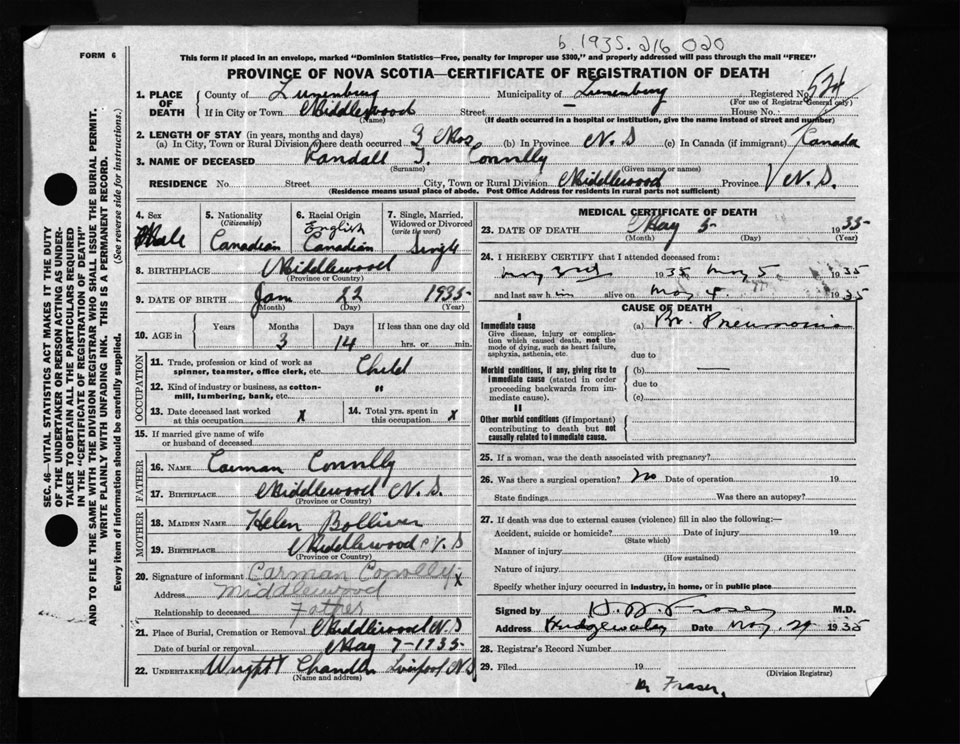 b. 1935. 216 020
FORM 6
This form if placed in an envelope, marked "Dominion Statistics—Free, penalty for improper use $300," and properly addressed will pass through the mail "FREE"
PROVINCE OF NOVA SCOTIA—CERTIFICATE OF REGISTRATION OF DEATH
SEC. 46—VITAL STATISTICS ACT MAKES IT THE DUTY
OF THE UNDERTAKER OR PERSON ACTING AS UNDER-
TAKER TO OBTAIN ALL THE PARTICULARS REQUIRED
IN THE "CERTIFICATE OF REGISTRATION OF DEATH"
AND TO FILE THE SAME WITH THE DIVISION REGISTRAR WHO SHALL ISSUE THE BURIAL PERMIT.
WRITE PLAINLY WITH UNFADING INK. THIS IS A PERMANENT RECORD.
Every item of information should be carefully supplied. (See reverse side for instructions.)
1. PLACE OF DEATH County of Lunenburg Municipality of Lunenburg Registered No. 524
(For use of Registrar General only)
If in City or Town Middlewood Street House No.
(Name) (If death occurred in a hospital or institution, give the name instead of street and number)
2. LENGTH OF STAY (in years, months and days)
(a) In City, Town or Rural Division where death occurred 3 Mos (b) In Province N. S (c) In Canada (if immigrant) Canada
3. NAME OF DECEASED Randall Connlly
(Surname) (Given name or names)
RESIDENCE No. Street City, Town or Rural Division Middlewood Province N. S.
(Residence means usual place of abode. Post Office Address for residents in rural parts not sufficient)
4. Sex Male
5. Nationality (Citizenship) Canadian
6. Racial Origin English Canadian
7. Single, Married, Widowed or Divorced (write the word) Single
8. BIRTHPLACE Middlewood
(Province or Country)
9. DATE OF BIRTH Jan 22 1935
(Month) (Day) (Year)
10. AGE in Years Months 3 Days 14 If less than one day old hrs. or min.
OCCUPATION
11. Trade, profession or kind of work as spinner, teamster, office clerk, etc. Child
12. Kind of industry or business, as cotton-mill, lumbering, bank, etc. "
13. Date deceased last worked at this occupation X 14. Total yrs. spent in this occupation X
15. If married give name of wife or husband of deceased
FATHER
16. NAME Carman Connlly
17. BIRTHPLACE Middlewood N. S.
(Province or Country)
MOTHER
18. MAIDEN NAME Helen Bolliver
19. BIRTHPLACE Middlewood N S
(Province or Country)
20. Signature of informant Carman Conolly X
Address Middlewood
Relationship to deceased Father
21. Place of Burial, Cremation or Removal Middlewood N S
Date of burial or removal May 7-1935
22. UNDERTAKER Chandler Liverpool N S
(Name and address)
MEDICAL CERTIFICATE OF DEATH
23. DATE OF DEATH May 5 1935
(Month) (Day) (Year)
24. I HEREBY CERTIFY that I attended deceased from:
May 3rd 1935 May 5 1935
and last saw him alive on May 4 1935
CAUSE OF DEATH
I
Immediate cause (a) Br. Pneumonia
Give disease, injury or complication which caused death, not the mode of dying, such as heart failure, asphyxia, asthenia, etc.
due to
Morbid conditions, if any, giving rise to immediate cause (stated in order proceeding backwards from immediate cause). (b) —
due to
(c)
II
Other morbid conditions (if important) contributing to death but not causally related to immediate cause.
25. If a woman, was the death associated with pregnancy?
26. Was there a surgical operation? No Date of operation 19
State findings Was there an autopsy?
27. If death was due to external causes (violence) fill in also the following:—
Accident, suicide or homicide? Date of injury 19
(State which)
Manner of injury
(How sustained)
Nature of injury
Specify whether injury occurred in industry, in home, or in public place
Signed by Fraser M.D.
Address Bridgewater Date May 29 1935
28. Registrar's Record Number
29. Filed 19
(Division Registrar)
Dr Fraser,